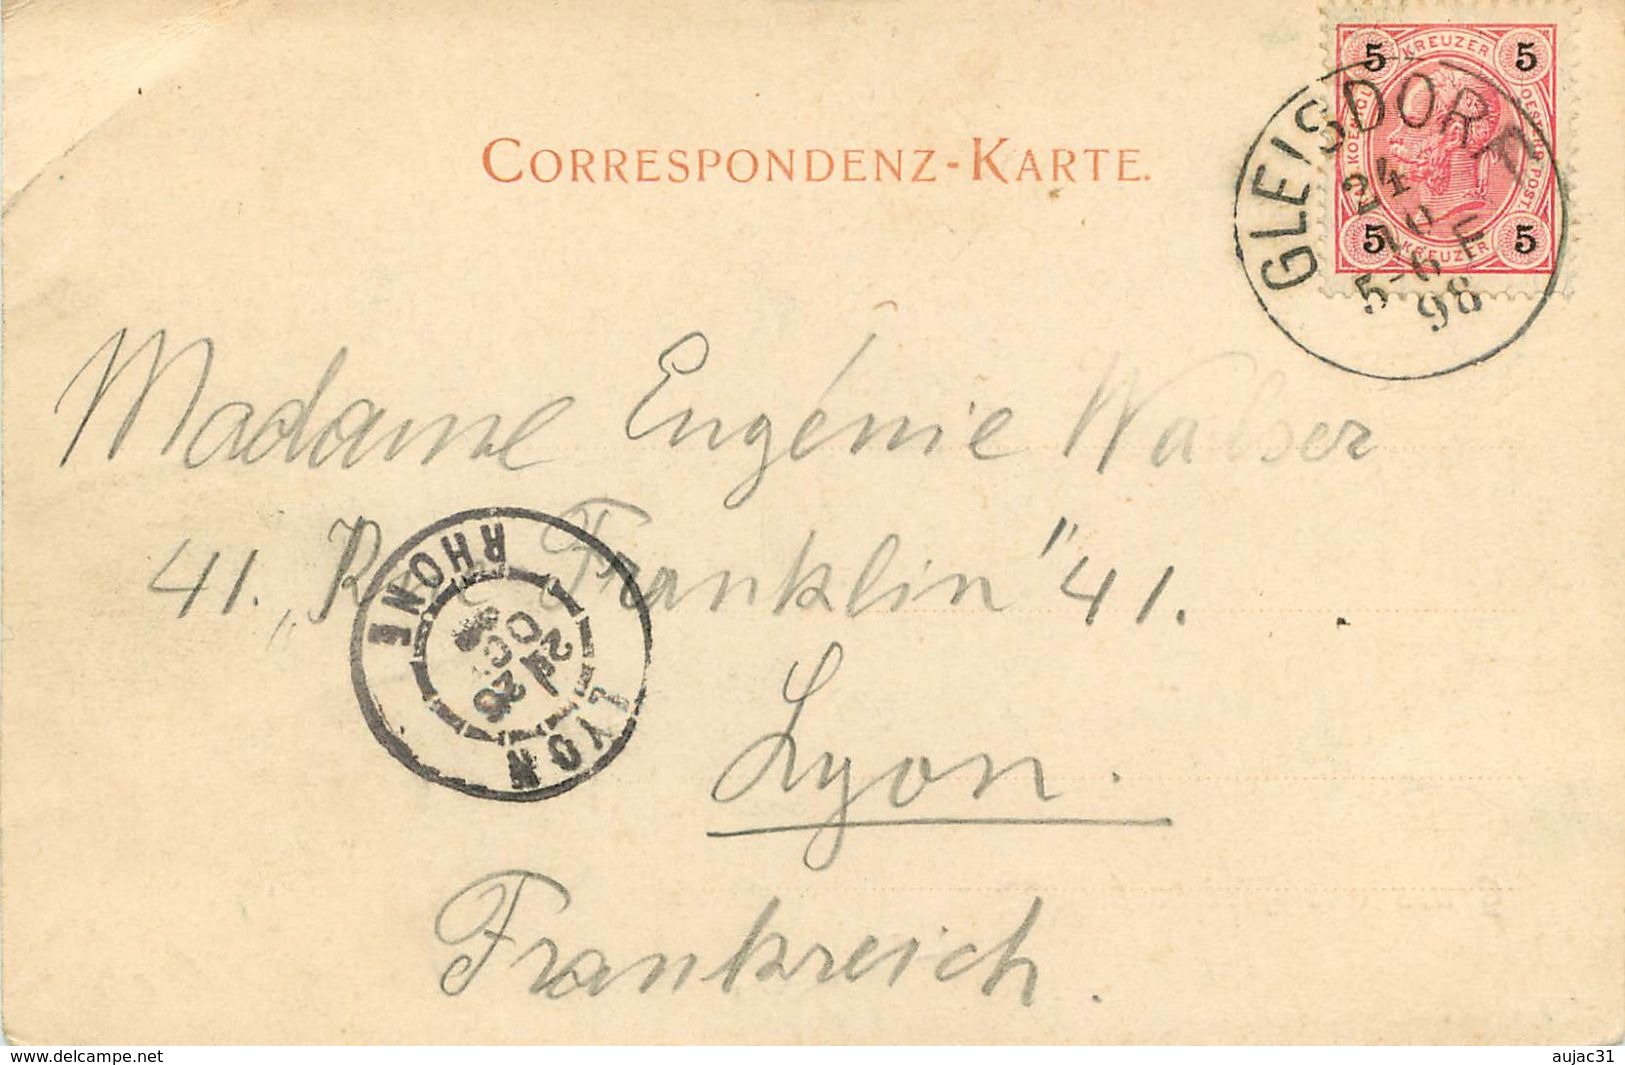 CORRESPONDENZ-KARTE.
5 KREUZER 5
5 KREUZER 5
GLEISDORF
24
10
5-6 E
98
Madame Eugénie Walser
41. „Rue Franklin" 41.
Lyon.
Frankreich.
LYON
RHONE
26
OCT
www.delcampe.net
aujac31